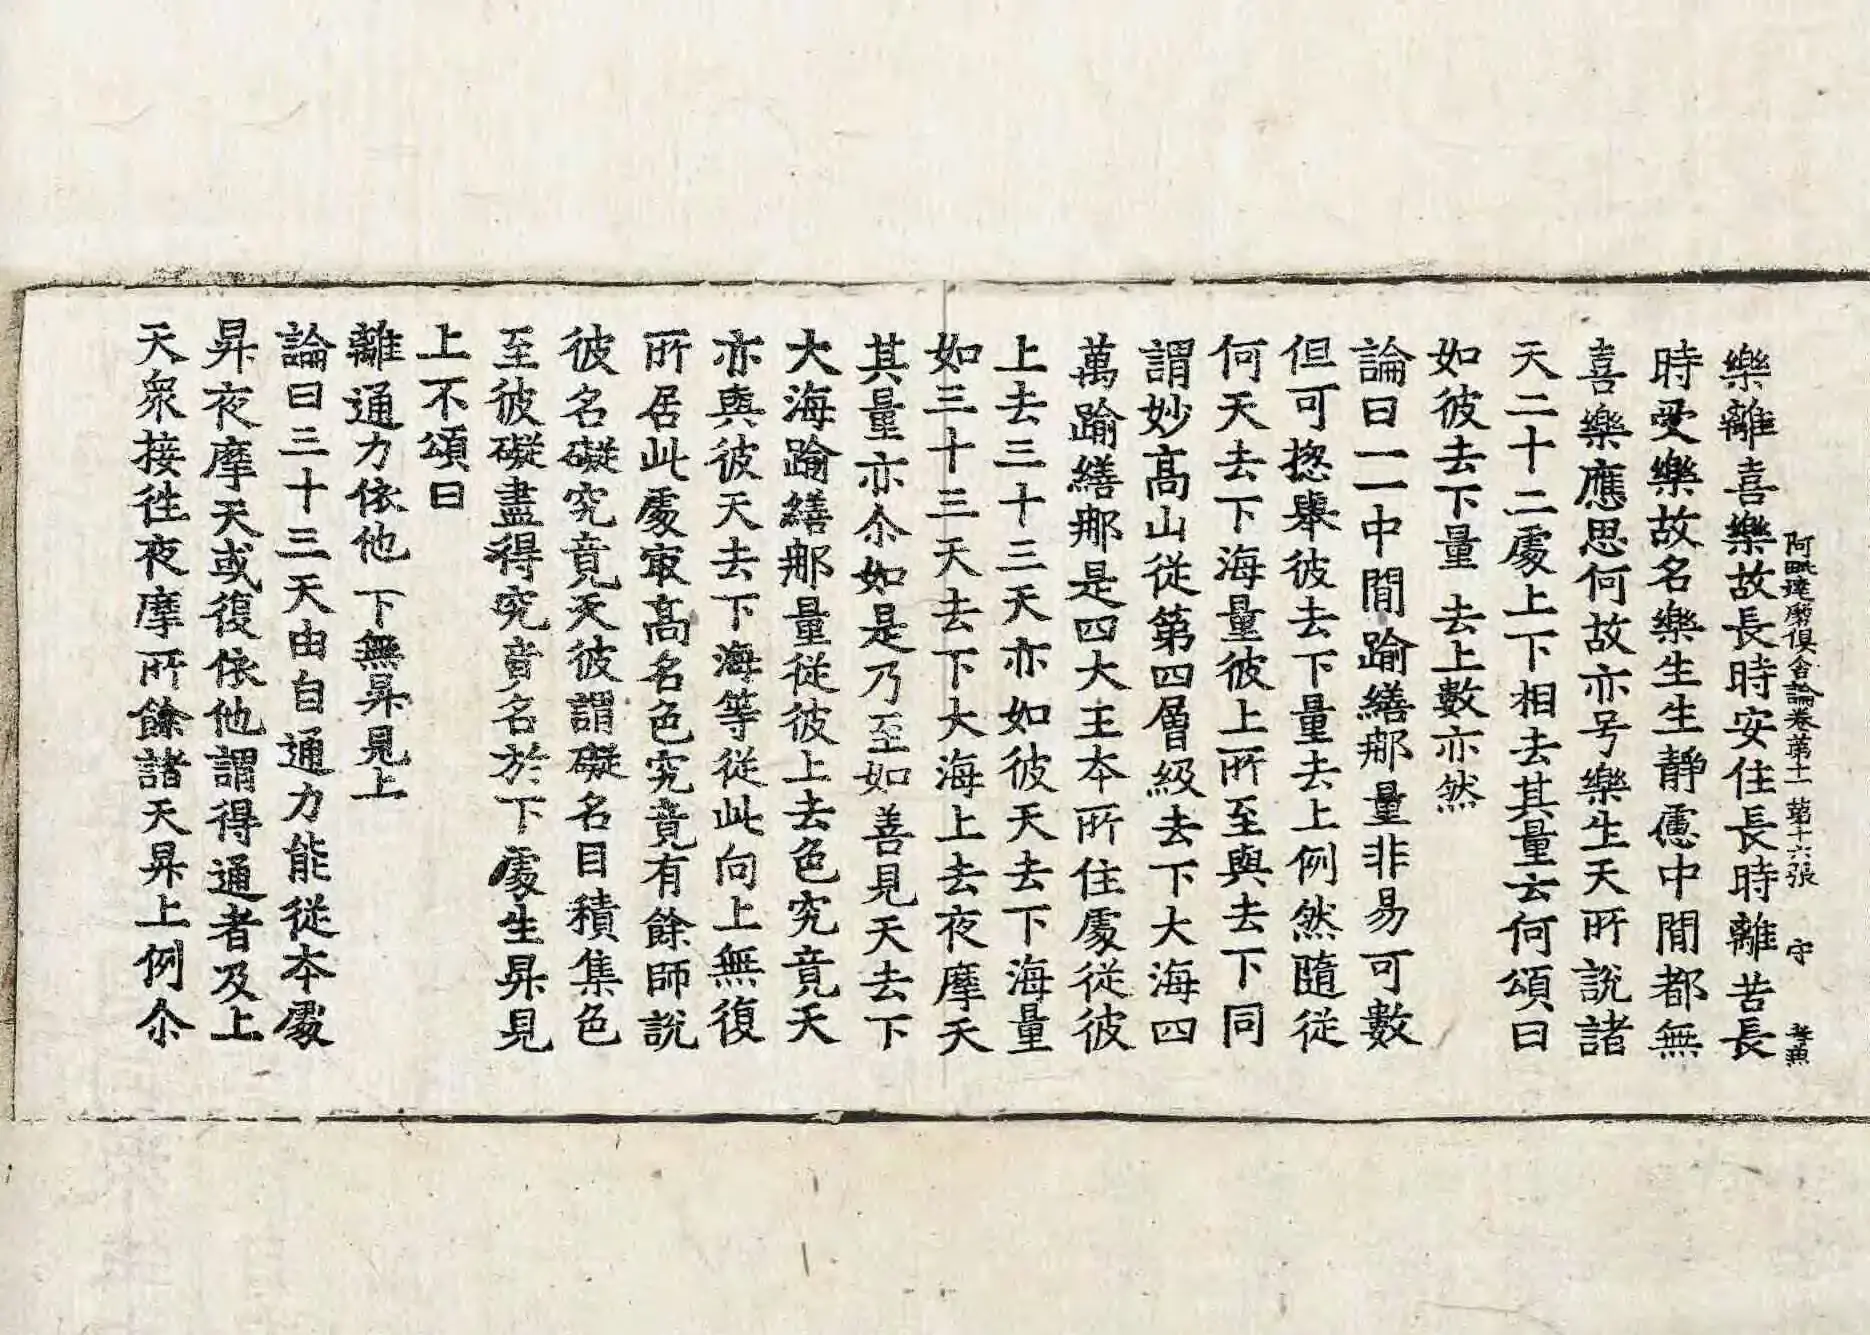 阿毗達磨俱舍論卷第十一 第十六張 守
樂離喜樂故長時安住長時離苦長
時受樂故名樂生生靜慮中間都無
喜樂應思何故亦号樂生天所說諸
天二十二處上下相去其量云何頌曰
如彼去下量 去上數亦然
論曰一一中間踰繕那量非易可數
但可揔舉彼去下量去上例然隨從
何天去下海量彼上所至與去下同
謂妙高山從第四層級去下大海四
萬踰繕那是四大王本所住處從彼
上去三十三天亦如彼天去下海量
如三十三天去下大海上去夜摩天
其量亦尒如是乃至如善見天去下
大海踰繕那量從彼上去色究竟天
亦與彼天去下海等從此向上無復
所居此處㝡高名色究竟有餘師說
彼名礙究竟天彼謂礙名目積集色
至彼礙盡得究竟名於下處生昇見
上不頌曰
離通力依他 下無昇見上
論曰三十三天由自通力能從本處
昇夜摩天或復依他謂得通者及上
天衆接往夜摩所餘諸天昇上例尒